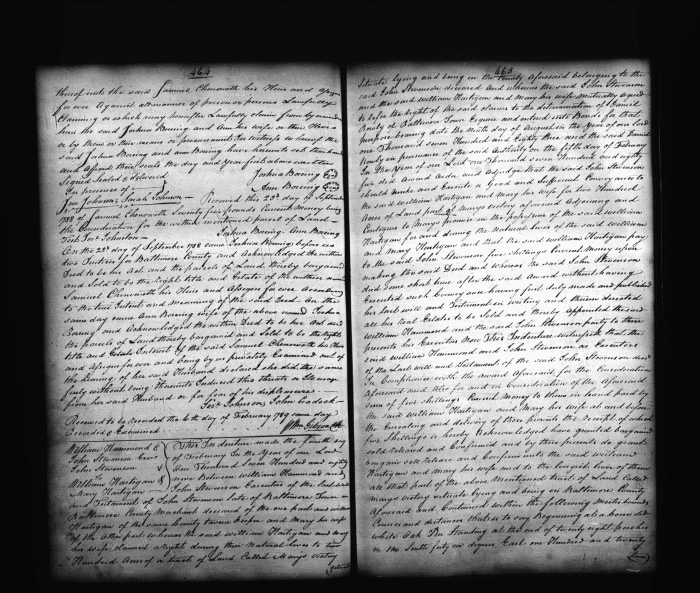 464
thereof unto the said Samuel Chenowith his Heirs and Assigns
forever Against all manner of person or persons Lawfully
Claiming or which may hereafter Lawfully Claim from by or under
him the said Joshua Boring and Ann his wife or their Heirs
or by them or their means or procurements In Witness whereof the
said Joshua Boring and Ann Boring have hereunto set their hands
and Affixed their Seals the day and year first above written
Signed Sealed & Delivered Joshua Boring
In presence of Ann Boring
Geo Johnson Received this 23d day of September
1788 of Samuel Chenowith Seventy five pounds Current Money being
the Consideration for the within mentioned parcel of Land
Test Joshua Boring Ann Boring
On the 23d day of September 1788 came Joshua Boring before us
two Justices for Baltimore County and Acknowledged the within
Deed to be his Act and the parcels of Land thereby bargained
and Sold to be the right title and Estate of the within named
Samuel Chenowith his Heirs and Assigns forever According
to the true Intent and meaning of the said Deed And the
same day came Ann Boring wife of the above named Joshua
Boring and Acknowledged the within Deed to be her Act and
the parcels of Land thereby bargained and Sold to be the right
title and Interest of the said Samuel Chenowith his Heirs
and Assigns forever and being by us privately Examined out of
the hearing of her said Husband declared she did the same
freely without being thereunto Induced thro threats or
from her said Husband or for fear of his displeasure
Geo Johnson John Cradock
Received to be recorded the 6th day of February 1789 same day
recorded & Examined Wm Gibson Clk
William Hammond &
John Stevenson Exrs
John Stevenson
To
William Hartigan &
Mary Hartigan
This Indenture made the fourth day
of February In the Year of our Lord
One Thousand Seven Hundred and eighty
nine Between William Hammond and
John Stevenson Executors of the last will
and Testament of John Stevenson late of Baltimore Town in
Baltimore County Merchant deceased of the one part and William
Hartigan of the same County and Mary his wife
of the other part whereas the said William Hartigan and Mary
his wife claimed a Right during their Natural lives to
Hundred Acres of a tract of Land Called Mary's
465
situate lying and being in the County Aforesaid belonging to the
said John Stevenson deceased and whereas the said John Stevenson
and the said William Hartigan and Mary his wife Mutually Agreed
to refer the right of the said claim to the determination of Daniel
Bowly of Baltimore Town Esquire and entered into Bonds for that
purpose bearing date the Ninth day of August in the Year of our Lord
one Thousand Seven Hundred and Eighty And the said Daniel
Bowly in pursuance of the said authority on the fifth day of February
In the Year of our Lord One Thousand Seven Hundred and eighty
five did Award Order and Adjudge that the said John Stevenson
should make and Execute a Good and Sufficient Conveyance to
the said William Hartigan and Mary his wife for two Hundred
Acres of Land part of Mary's Adjoining and
Contiguous to Mary's in the possession of the said William
Hartigan for and during the Natural lives of the said William
and Mary Hartigan and that the said William Hartigan pay
to the said John Stevenson five shillings Current Money upon
making the said Deed and whereas the said John Stevenson
died some short time after the said Award without having
Executed such Conveyance having first duly made and published
his last will and Testament in writing and therein directed
all his Real Estate to be Sold and thereby Appointed the said
William Hammond and the said John Stevenson party to these
presents his Executors Now This Indenture Witnesseth that the
said William Hammond and John Stevenson as Executors
of the Last will and Testament of the said John Stevenson decd
In Compliance with the award Aforesaid for the Consideration
Aforesaid and Also for and in Consideration of the Aforesaid
sum of five Shillings Current Money to them in hand paid by
the said William Hartigan and Mary his wife at and before
the Ensealing and delivery of these presents the receipt of which
five Shillings is hereby Acknowledged have granted bargained
sold released and Confirmed and by these presents do grant
bargain sell release and Confirm unto the said William
Hartigan and Mary his wife and to the longest liver of them
all that part of the above Mentioned tract of Land Called
Mary's situate lying and being in Baltimore County
Aforesaid and Contained within the following Metes bounds
Courses and distances that is to say Beginning at a bounded
white Oak Tree Standing at the end of twenty eight perches
on the South forty six degrees East one Hundred and twenty